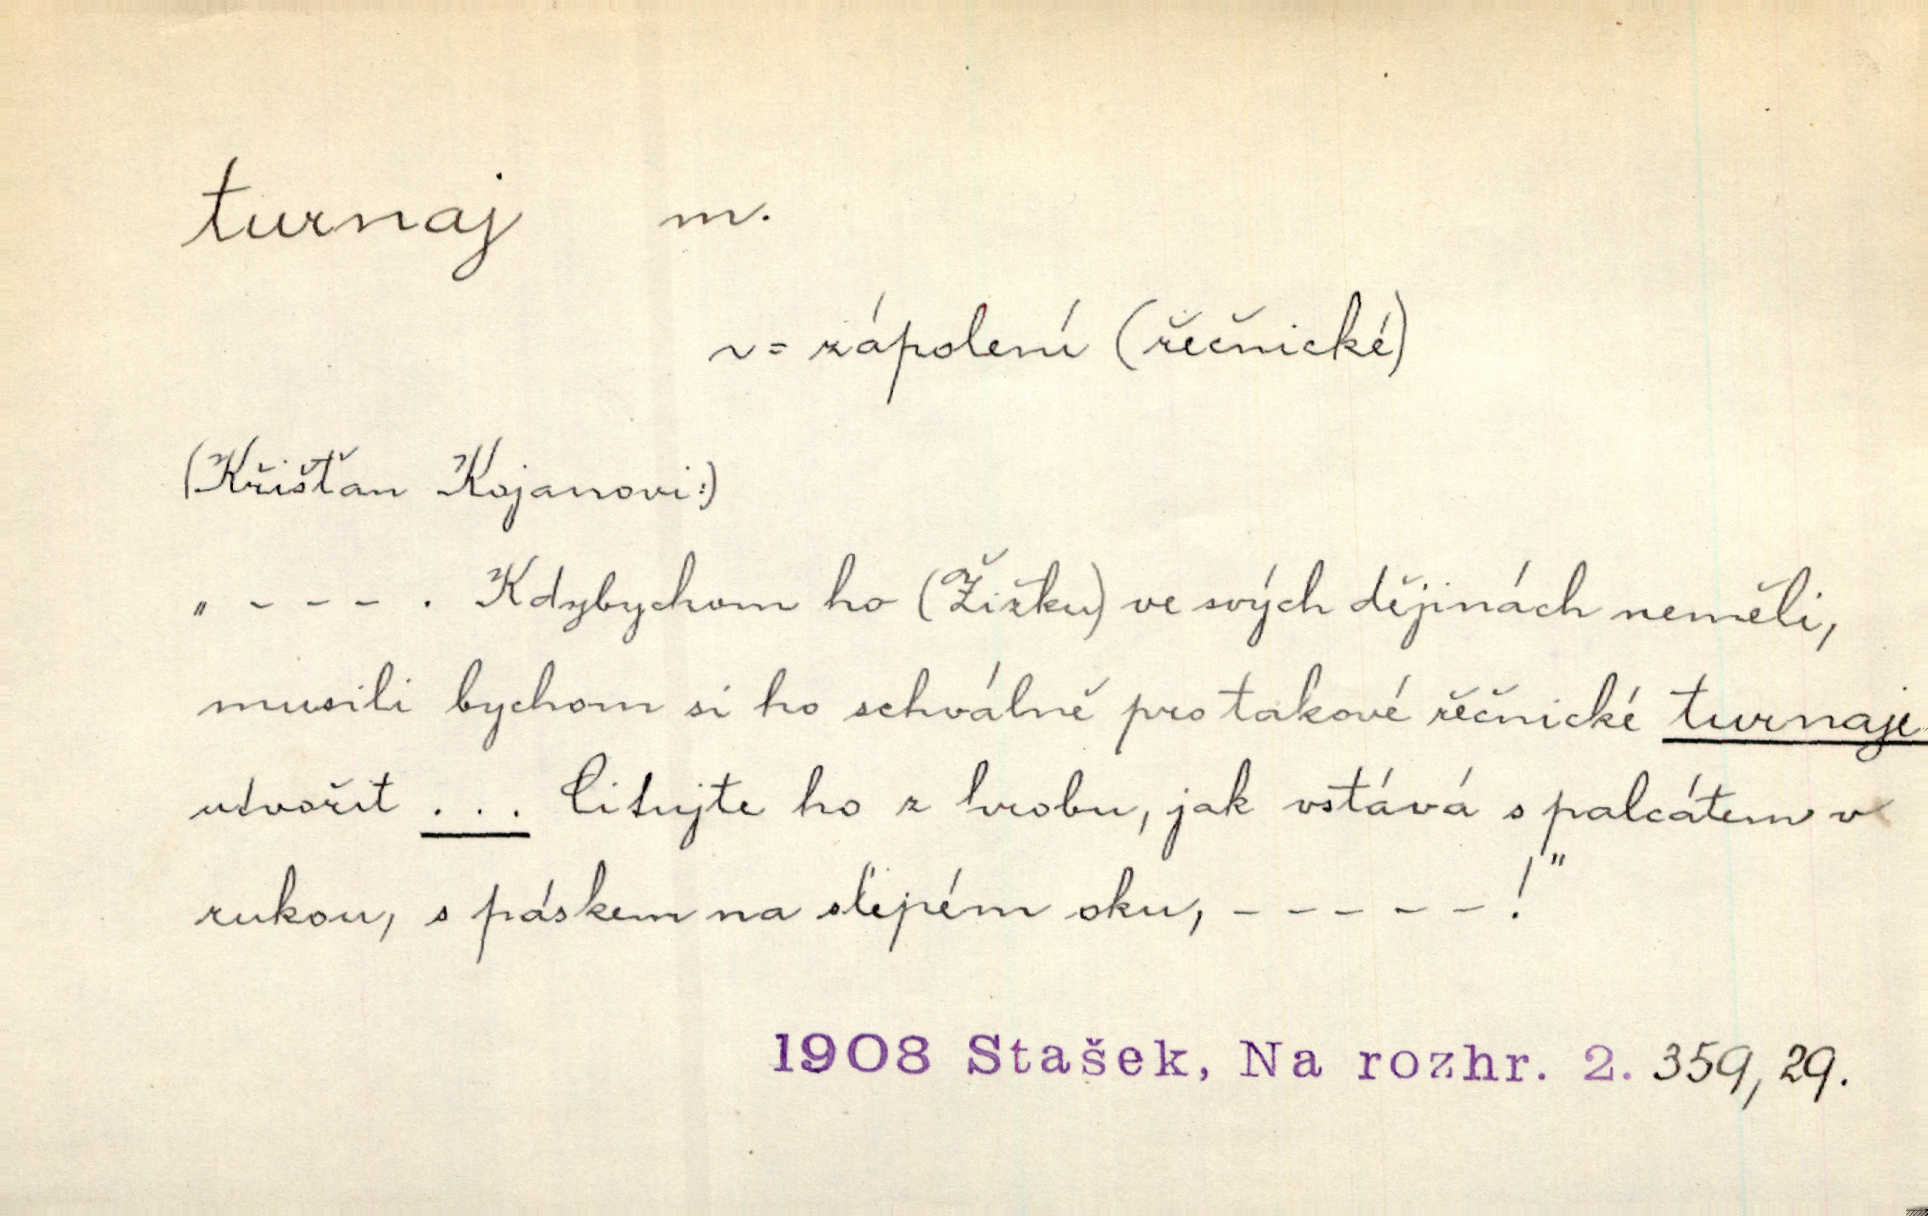 turnaj m.
~= zápolení (řečnické)
(Křišťan Kojanovi:)
„ - - - - . Kdybychom ho (Žižku) ve svých dějinách neměli,
musili bychom si ho schválně pro takové řečnické turnaje
utvořit . . . Citujte ho z hrobu, jak vstává s palcátem v
rukou, s páskem na slepém oku, - - - - - !"
1908 Stašek, Na rozhr. 2. 359, 29.